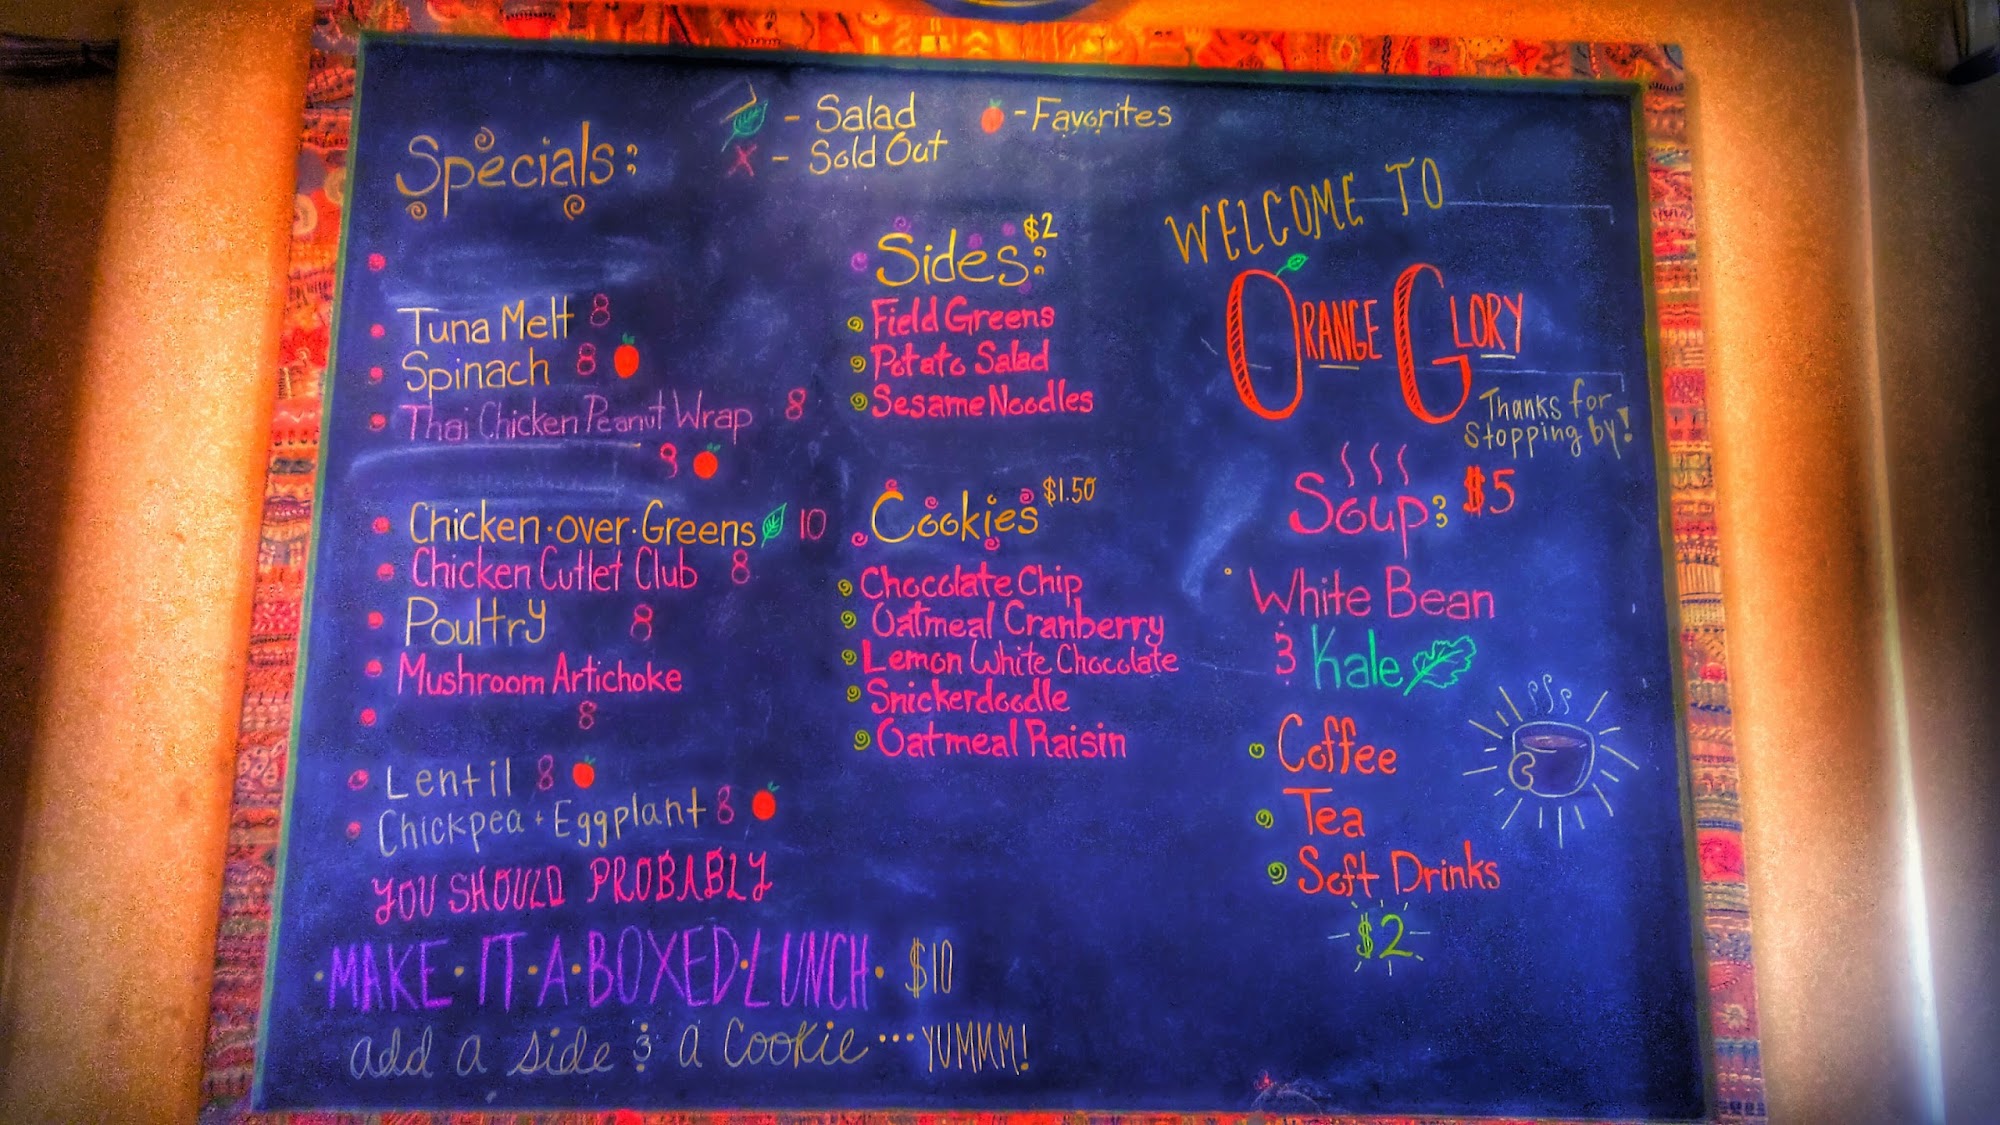 - Salad
- Favorites
X - Sold Out
Specials:
Tuna Melt 8
Spinach 8
Thai Chicken Peanut Wrap 8
9
Chicken·over·Greens 10
Chicken Cutlet Club 8
Poultry 8
Mushroom Artichoke
8
Lentil 8
Chickpea + Eggplant 8
YOU SHOULD PROBABLY
·MAKE·IT·A·BOXED·LUNCH· $10
add a side & a Cookie ···YUMMM!
Sides: $2
Field Greens
Potato Salad
Sesame Noodles
Cookies $1.50
Chocolate Chip
Oatmeal Cranberry
Lemon White Chocolate
Snickerdoodle
Oatmeal Raisin
WELCOME TO
ORANGE GLORY
Thanks for
stopping by!
Soup: $5
White Bean
& Kale
Coffee
Tea
Soft Drinks
$2